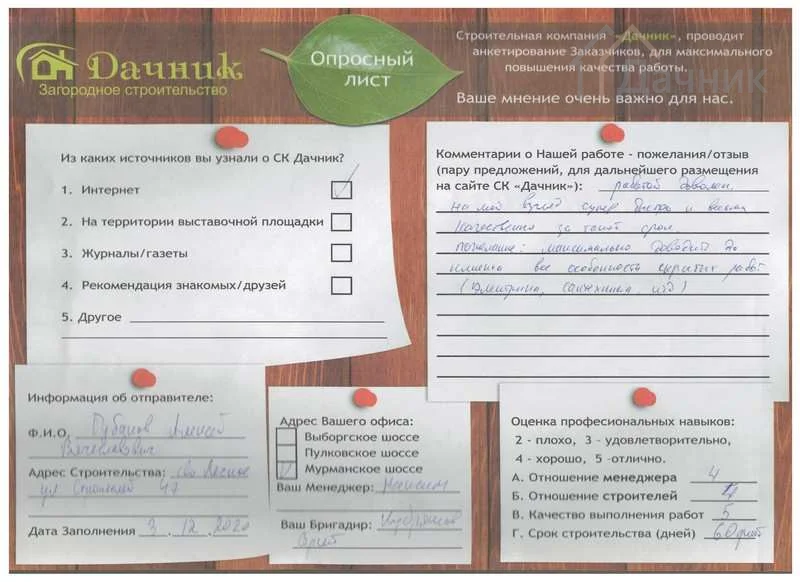 Дачник
Загородное строительство
Опросный
лист
Строительная компания «Дачник», проводит
анкетирование Заказчиков, для максимального
повышения качества работы.
Ваше мнение очень важно для нас.
Дачник
Из каких источников вы узнали о СК Дачник?
1. Интернет
2. На территории выставочной площадки
3. Журналы/газеты
4. Рекомендация знакомых/друзей
5. Другое
Комментарии о Нашей работе - пожелания/отзыв
(пару предложений, для дальнейшего размещения
на сайте СК «Дачник»): работой доволен.
На мой взгляд супер быстро и
качественно за такой срок.
пожелание: максимально доводить до
клиента все особенность скрытых работ
(Электрика, сантехника, итд)
Информация об отправителе:
Ф.И.О. Губанов Алексей
Вячеславович
Адрес Строительства:
ул Строителей 47
Дата Заполнения 3.12.2020
Адрес Вашего офиса:
Выборгское шоссе
Пулковское шоссе
Мурманское шоссе
Ваш Менеджер: Максим
Ваш Бригадир:
Юрий
Оценка професиональных навыков:
2 - плохо, 3 - удовлетворительно,
4 - хорошо, 5 -отлично.
А. Отношение менеджера 4
Б. Отношение строителей 4
В. Качество выполнения работ 5
Г. Срок строительства (дней) 60 дней